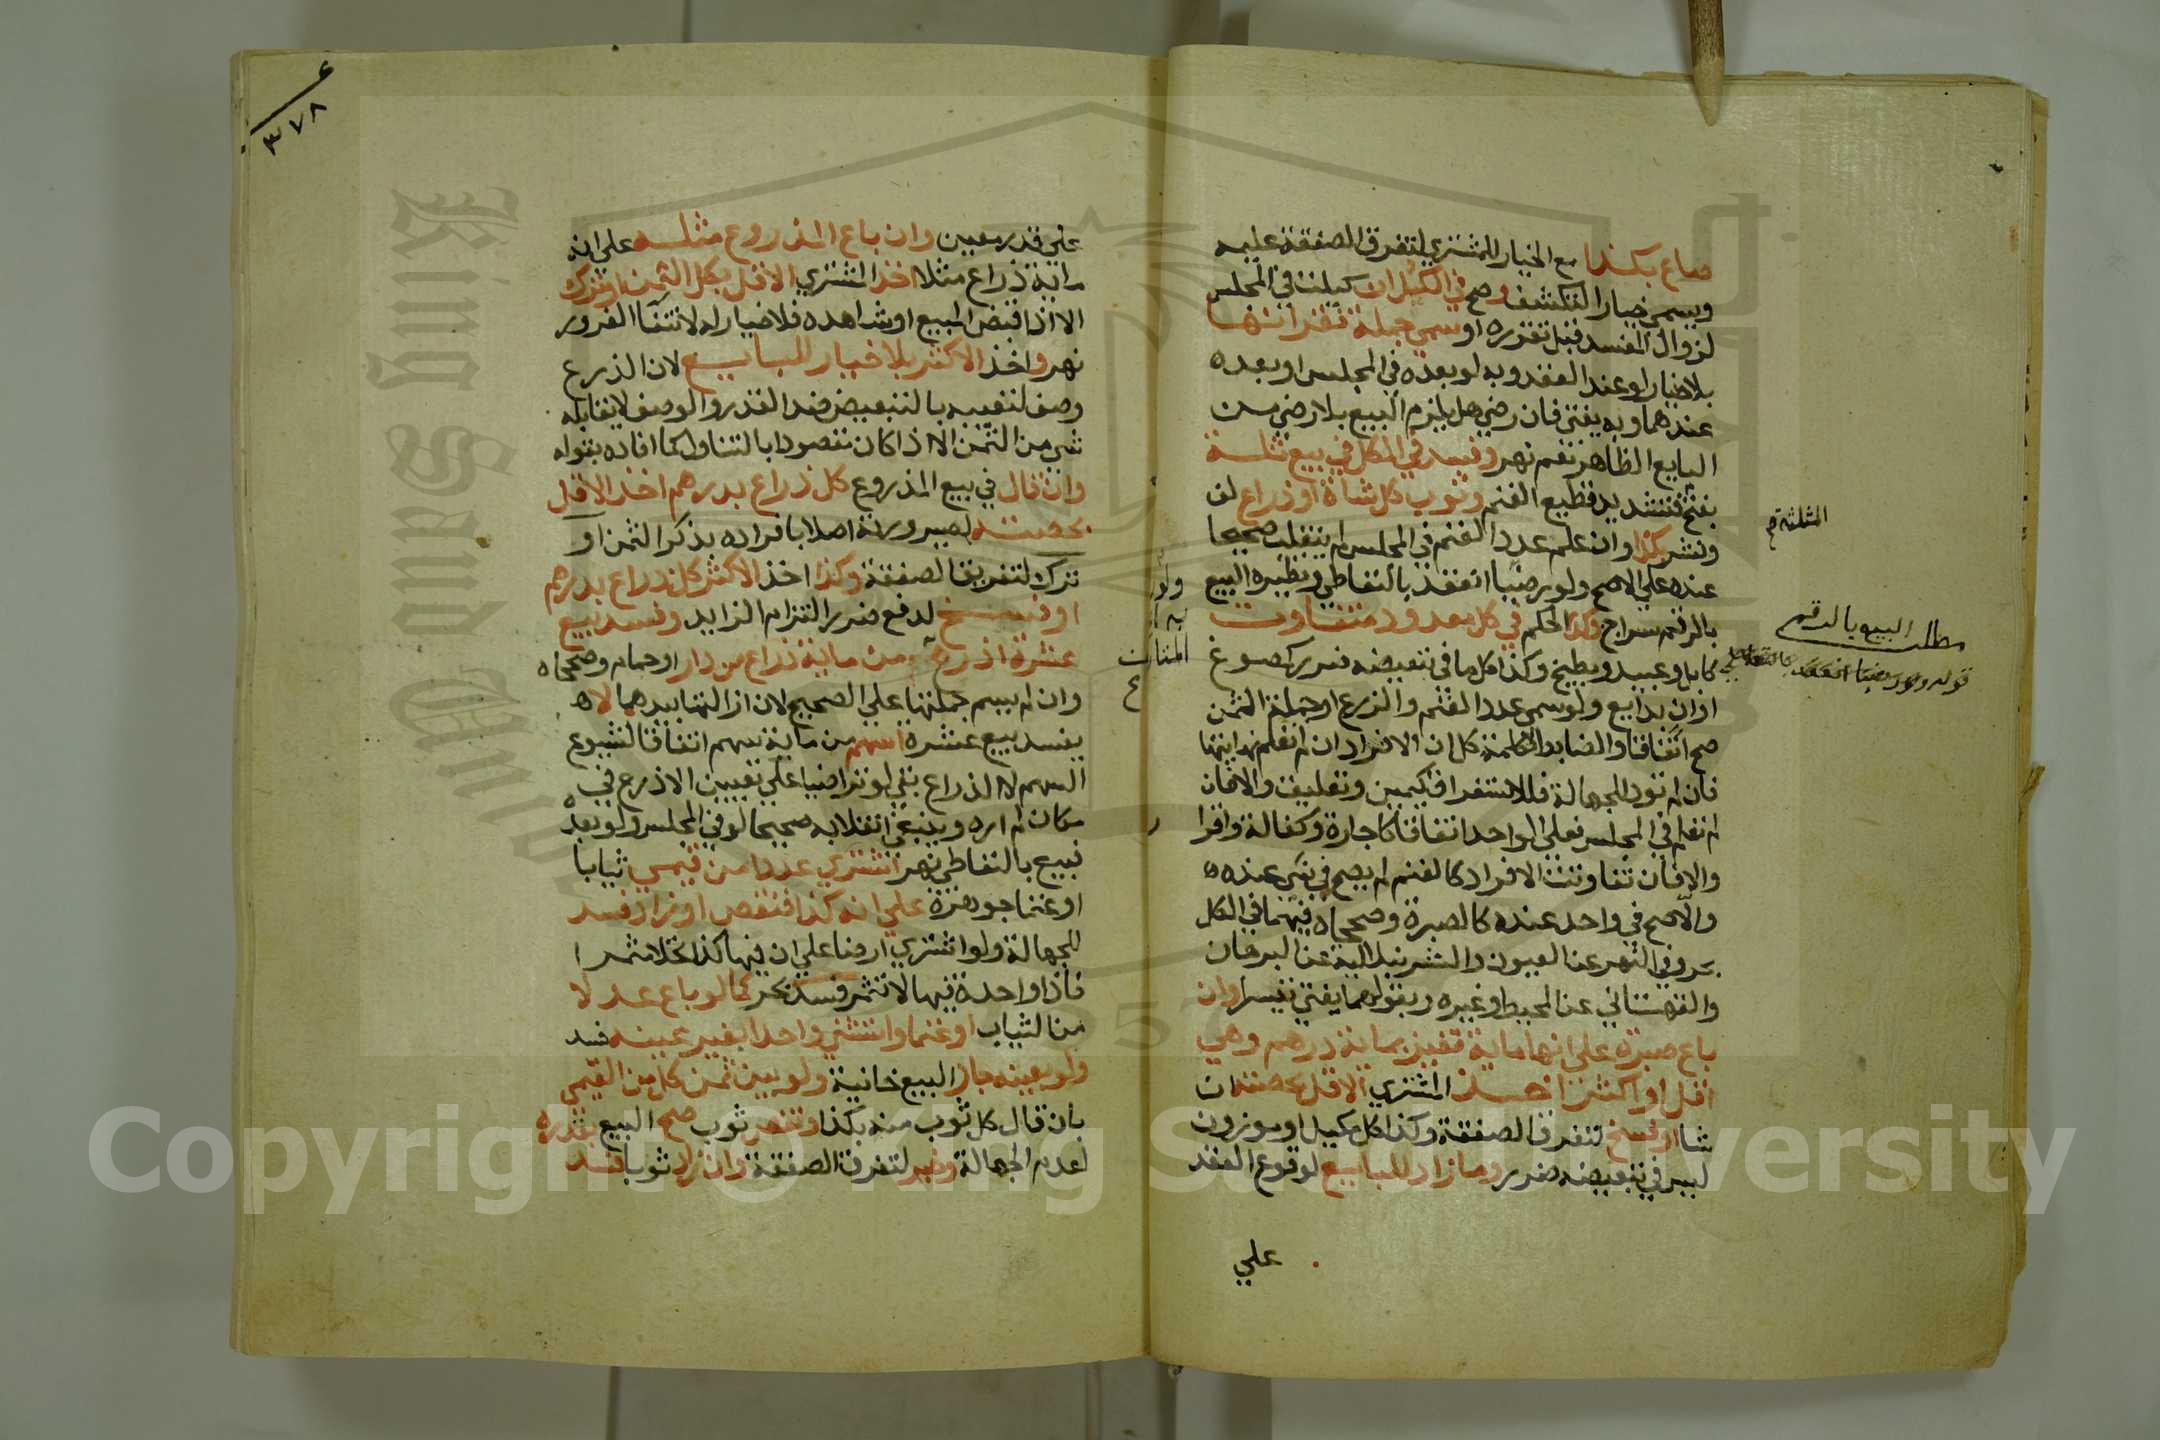 صاع بكذا مع الخيار للمشتري لتفرق الصفقة عليه
ويسمى خيار التكشف وصح في الكل ان كيلت في المجلس
لزوال المفسد قبل تقرره او سمى جملة قفزانها
بلا خيار لو عند العقد وبه لو بعده في المجلس او بعده
عندهما وبه يفتى فان رضي هل يلزم البيع بلا رضى من
البايع الظاهر نعم نهر وفسد في الكل في بيع ثلة
بفتح فتشديد قطيع الغنم وثوب كل شاة او ذراع لف
ونشر بكذا وان علم عدد الغنم في المجلس لم ينقلب صحيحا
عنده على الاصح ولو رضيا انعقد بالتعاطي ونظيره البيع
بالرقم سراج وكذا الحكم في كل معدود متفاوت
كابل وعبيد وبطيخ وكذا كل ما في تبعيضه ضرر كمصوغ
اوان بدايع ولو سمى عدد الغنم والذرع او جملة الثمن
صح اتفاقا والضابط لكلمة كل ان الافراد ان لم تعلم نهايتها
فان لم تود للجهالة فللاستغراق كيمين وتعليق والا فان
لم تعلم في المجلس فعلى الواحد اتفاقا كاجارة وكفالة واقرا
والا فان تفاوتت الافراد كالغنم لم يصح في شي عنده
والا صح في واحد عنده كالصبرة وصححاه فيهما في الكل
بحر وفي النهر عن العيون والشرنبلالية عن البرهان
والقهستاني عن المحيط وغيره وبقولهما يفتى تيسيرا وان
باع صبرة على انها ماية قفيز بماية درهم وهي
اقل او اكثر اخذ المشتري الاقل بحصته ان
شا او فسخ لتفرق الصفقة وكذا كل مكيل او موزون
ليس في تبعيضه ضرر وما زاد للبايع لوقوع العقد
على
المثلثة
مطلب البيع بالرقم
قوله ولو رضيا انعقد بالتعاطي
٤
٣٧٨
على قدر معين وان باع المذروع مثله على انه
ماية ذراع مثلا اخذ المشتري الاقل بكل الثمن او ترك
الا اذا قبض المبيع او شاهده فلا خيار له لانتفا الغرور
نهر واخذ الاكثر بلا خيار للبايع لان الذرع
وصف لتعيبه بالتبعيض ضد القدر والوصف لا يقابله
شي من الثمن الا اذا كان مقصودا بالتناول كما افاده بقوله
وان قال في بيع المذروع كل ذراع بدرهم اخذ الاقل
بحصته لصيرورته اصلا بافراده بذكر الثمن او
ترك لتفريق الصفقة وكذا اخذ الاكثر كل ذراع بدرهم
او فسخ لدفع ضرر التزام الزايد وفسد بيع
عشرة اذرع من ماية ذراع من دار او حمام وصححاه
وان لم يسم جملتها على الصحيح لان ازالتها بيدهما لا
يفسد بيع عشرة اسهم من ماية سهم اتفاقا لشيوع
السهم لا الذراع بقي لو تراضيا على تعيين الاذرع في
مكان لم اره وينبغي انقلابه صحيحا لو في المجلس ولو بعده
فبيع بالتعاطي نهر اشترى عددا من قيمي ثيابا
او غنما جوهرة على انه كذا فنقص او زاد فسد
للجهالة ولو اشترى ارضا على ان فيها كذا نخلا مثمرا
فاذا واحدة فيها لا تثمر فسد بحر كما لو باع عدلا
من الثياب او غنما واستثنى واحدا بغير عينه فسد
ولو بعينه جاز البيع خانية ولو بين ثمن كل من القيمي
بان قال كل ثوب منه بكذا ونقص ثوب صح البيع بقدره
لعدم الجهالة وخير لتفرق الصفقة وان زاد ثوبا فسد
Copyright © King Saud University
King Saud University